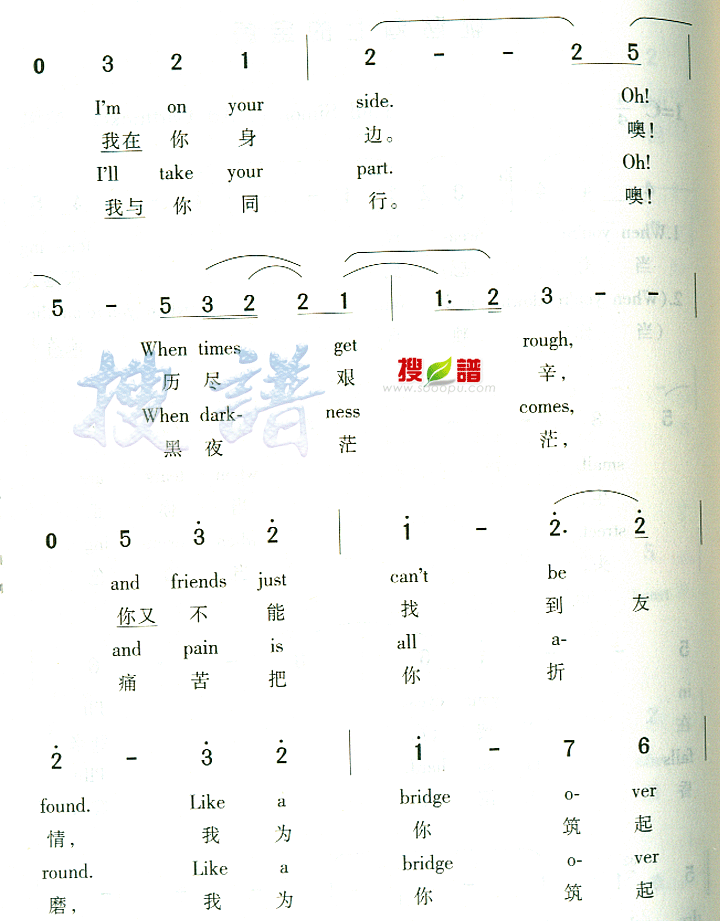 0 3 2 1 | 2 - - 2 5 |
I'm on your side. Oh!
我在 你 身 边。 噢!
I'll take your part. Oh!
我与 你 同 行。 噢!
5 - 5 3 2 2 1 | 1. 2 3 - -
When times get rough,
历 尽 艰 辛,
When dark- ness comes,
黑 夜 茫 茫,
搜谱
搜谱
www.sooopu.com
0 5 3 2 | 1 - 2. 2
and friends just can't be
你又 不 能 找 到 友
and pain is all a-
痛 苦 把 你 折
2 - 3 2 | 1 - 7 6 |
found. Like a bridge o- ver
情, 我 为 你 筑 起
round. Like a bridge o- ver
磨, 我 为 你 筑 起